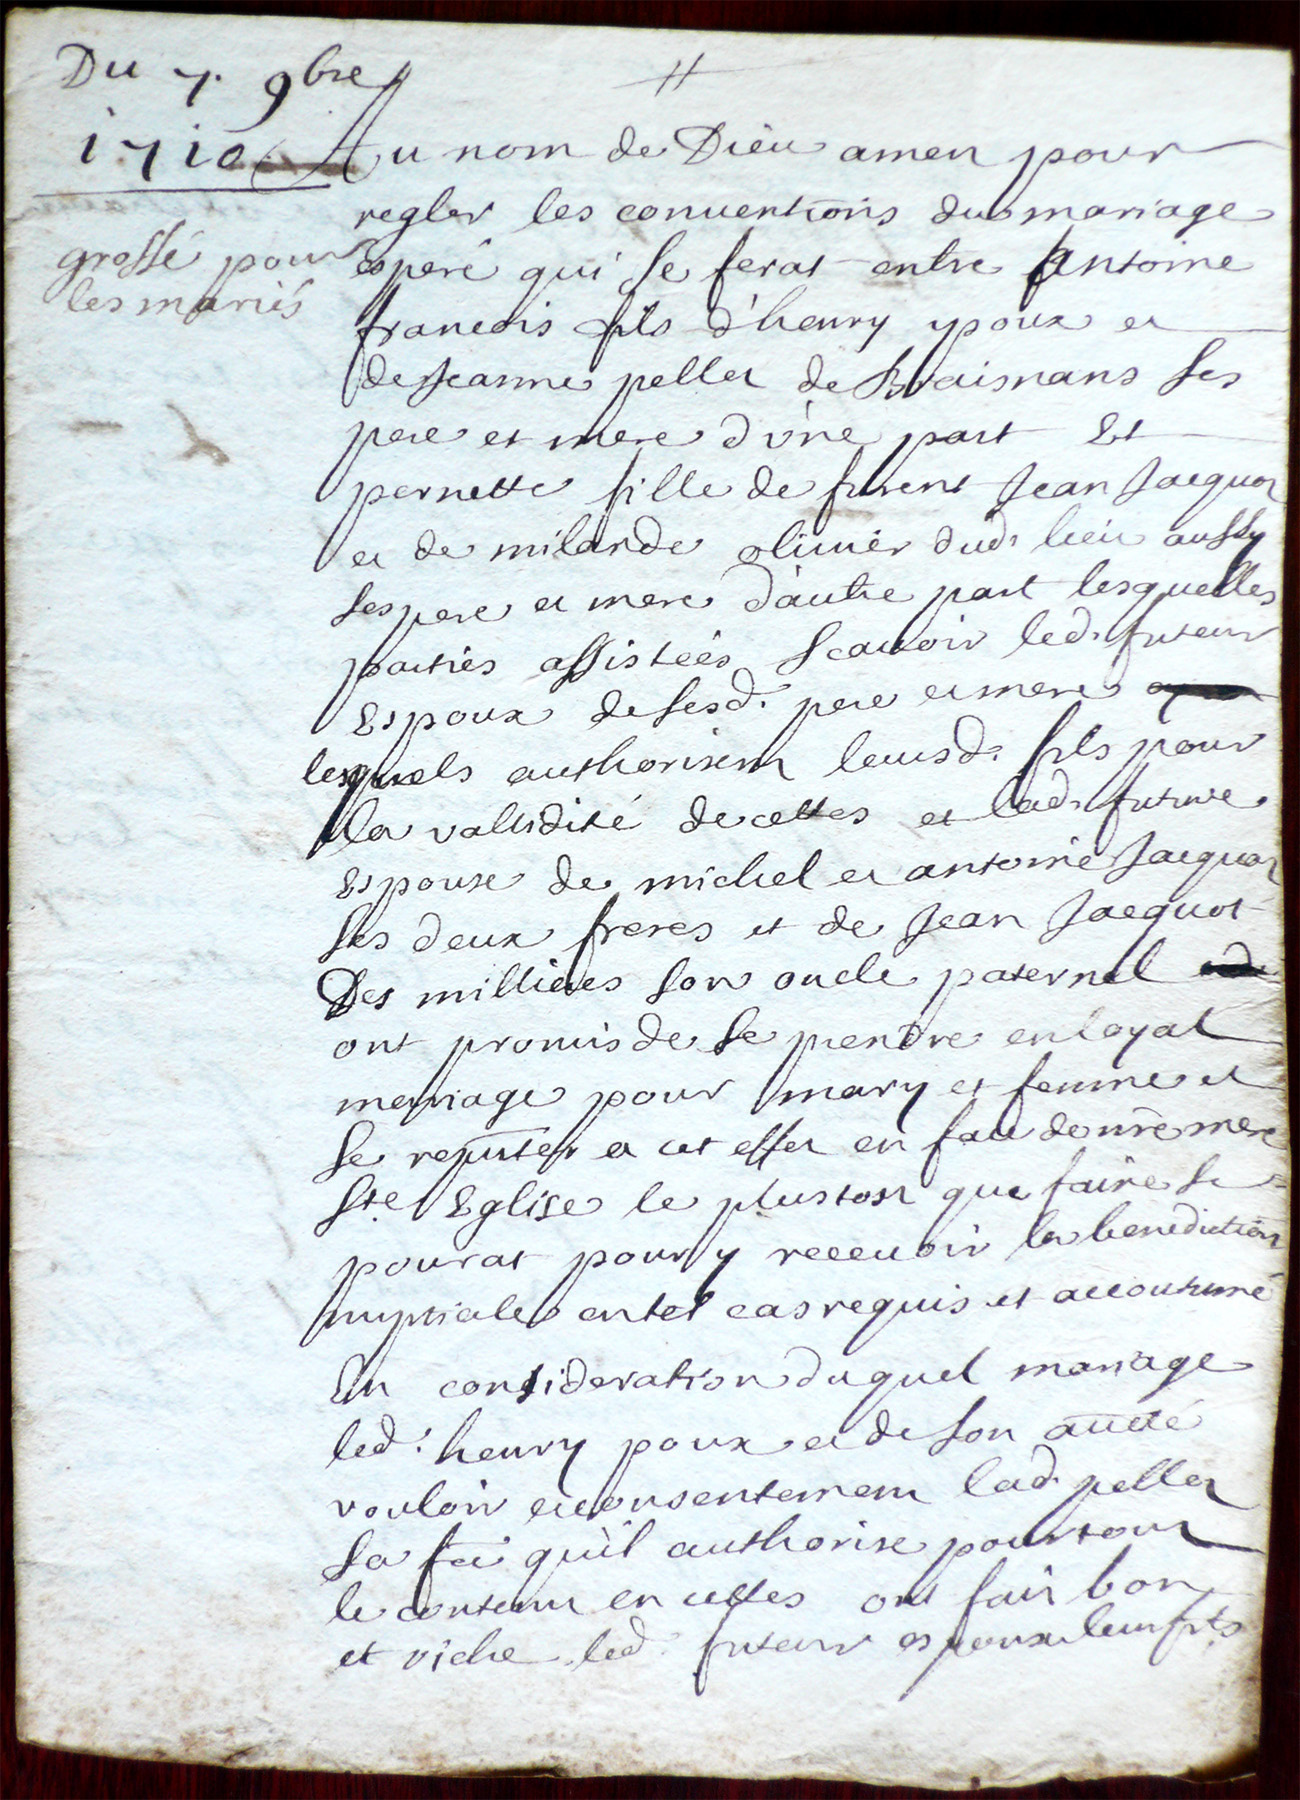 Du 7. 9bre
1710
grossé pour
les mariés
Au nom de Dieu amen pour
regler les conventions du mariage
esperé qui se ferat entre Antoine
francois fils d'henry poux et
de Jeanne pellet de Braisnans ses
pere et mere d'vne part Et
pernette fille de furent Jean Jacquot
et de milande oliuier dud. lieu aussy
ses pere et mere d'autre part lesquelles
parties assistéés scauoir led. futeur
Espoux de sesd. pere et mere
lesquels authorisent leursd. fils pour
la vallidité de cettes et lad. future
Espouse de michel et antoine Jacquot
ses deux freres et de Jean Jacquot
Des millieres son oncle paternel
ont promis de se prendre en loyal
mariage pour mary et femme et
se reputer a cet effet en face de nre mere
Ste Eglise le plustost que faire se
pourat pour y receuoir la benediction
nuptiale en tel cas requis et accoutumé
En consideration duquel mariage
led. henry poux et de son
vouloir et consentement lad. pellet
sa fe qu'il authorise pour tout
le contenu en cettes ont fait bon
et riche led. futeur espoux leur fils